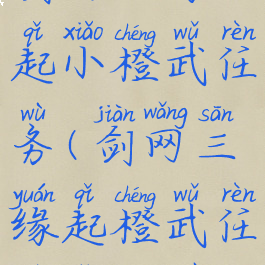 qǐ xiǎo chéng wǔ rèn
起小橙武任
wù jiàn wǎng sān
务(剑网三
yuán qǐ chéng wǔ rèn
缘起橙武任